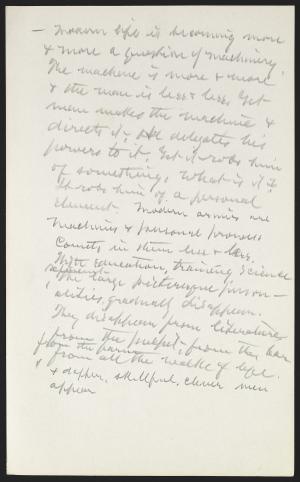 — Modern life is becoming more
& more a question of machinery.
The machine is more & more
& the man is less & less. Yet
man makes the machine &
directs it; he delegates his
powers to it. Yet it robs him
of something. What is it?
It robs him of a personal
element. Modern armies are
machines & personal prowess
counts in them less & less.
With education, training science
refinement
the large picturesque person—
alities, gradually disappear.
They disappear from literature
from the pulpit, from the bar
from the farm
& from all the walks of life.
& deft, skillful, clever men
appear